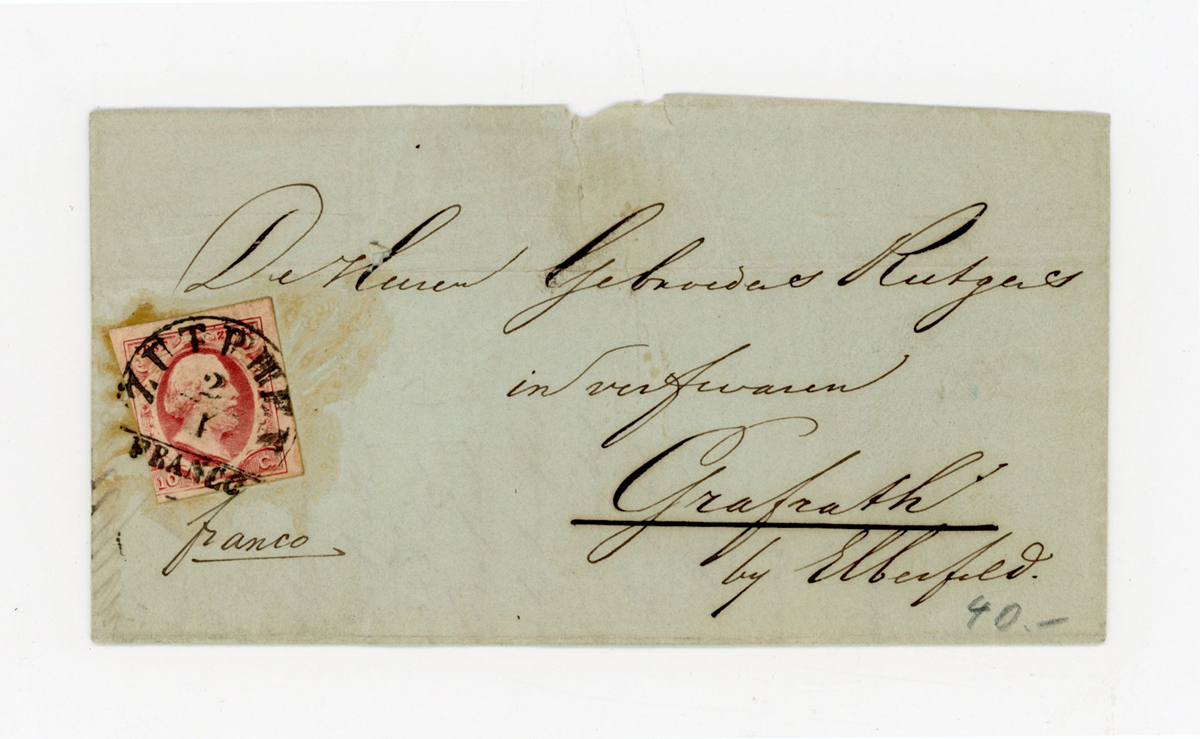 De Heeren Gebroeders Rutgers
in verfwaren
Grafrath
by Elberfeld.
ZUTPHEN
2
1
FRANCO
10 C.
franco
40.-